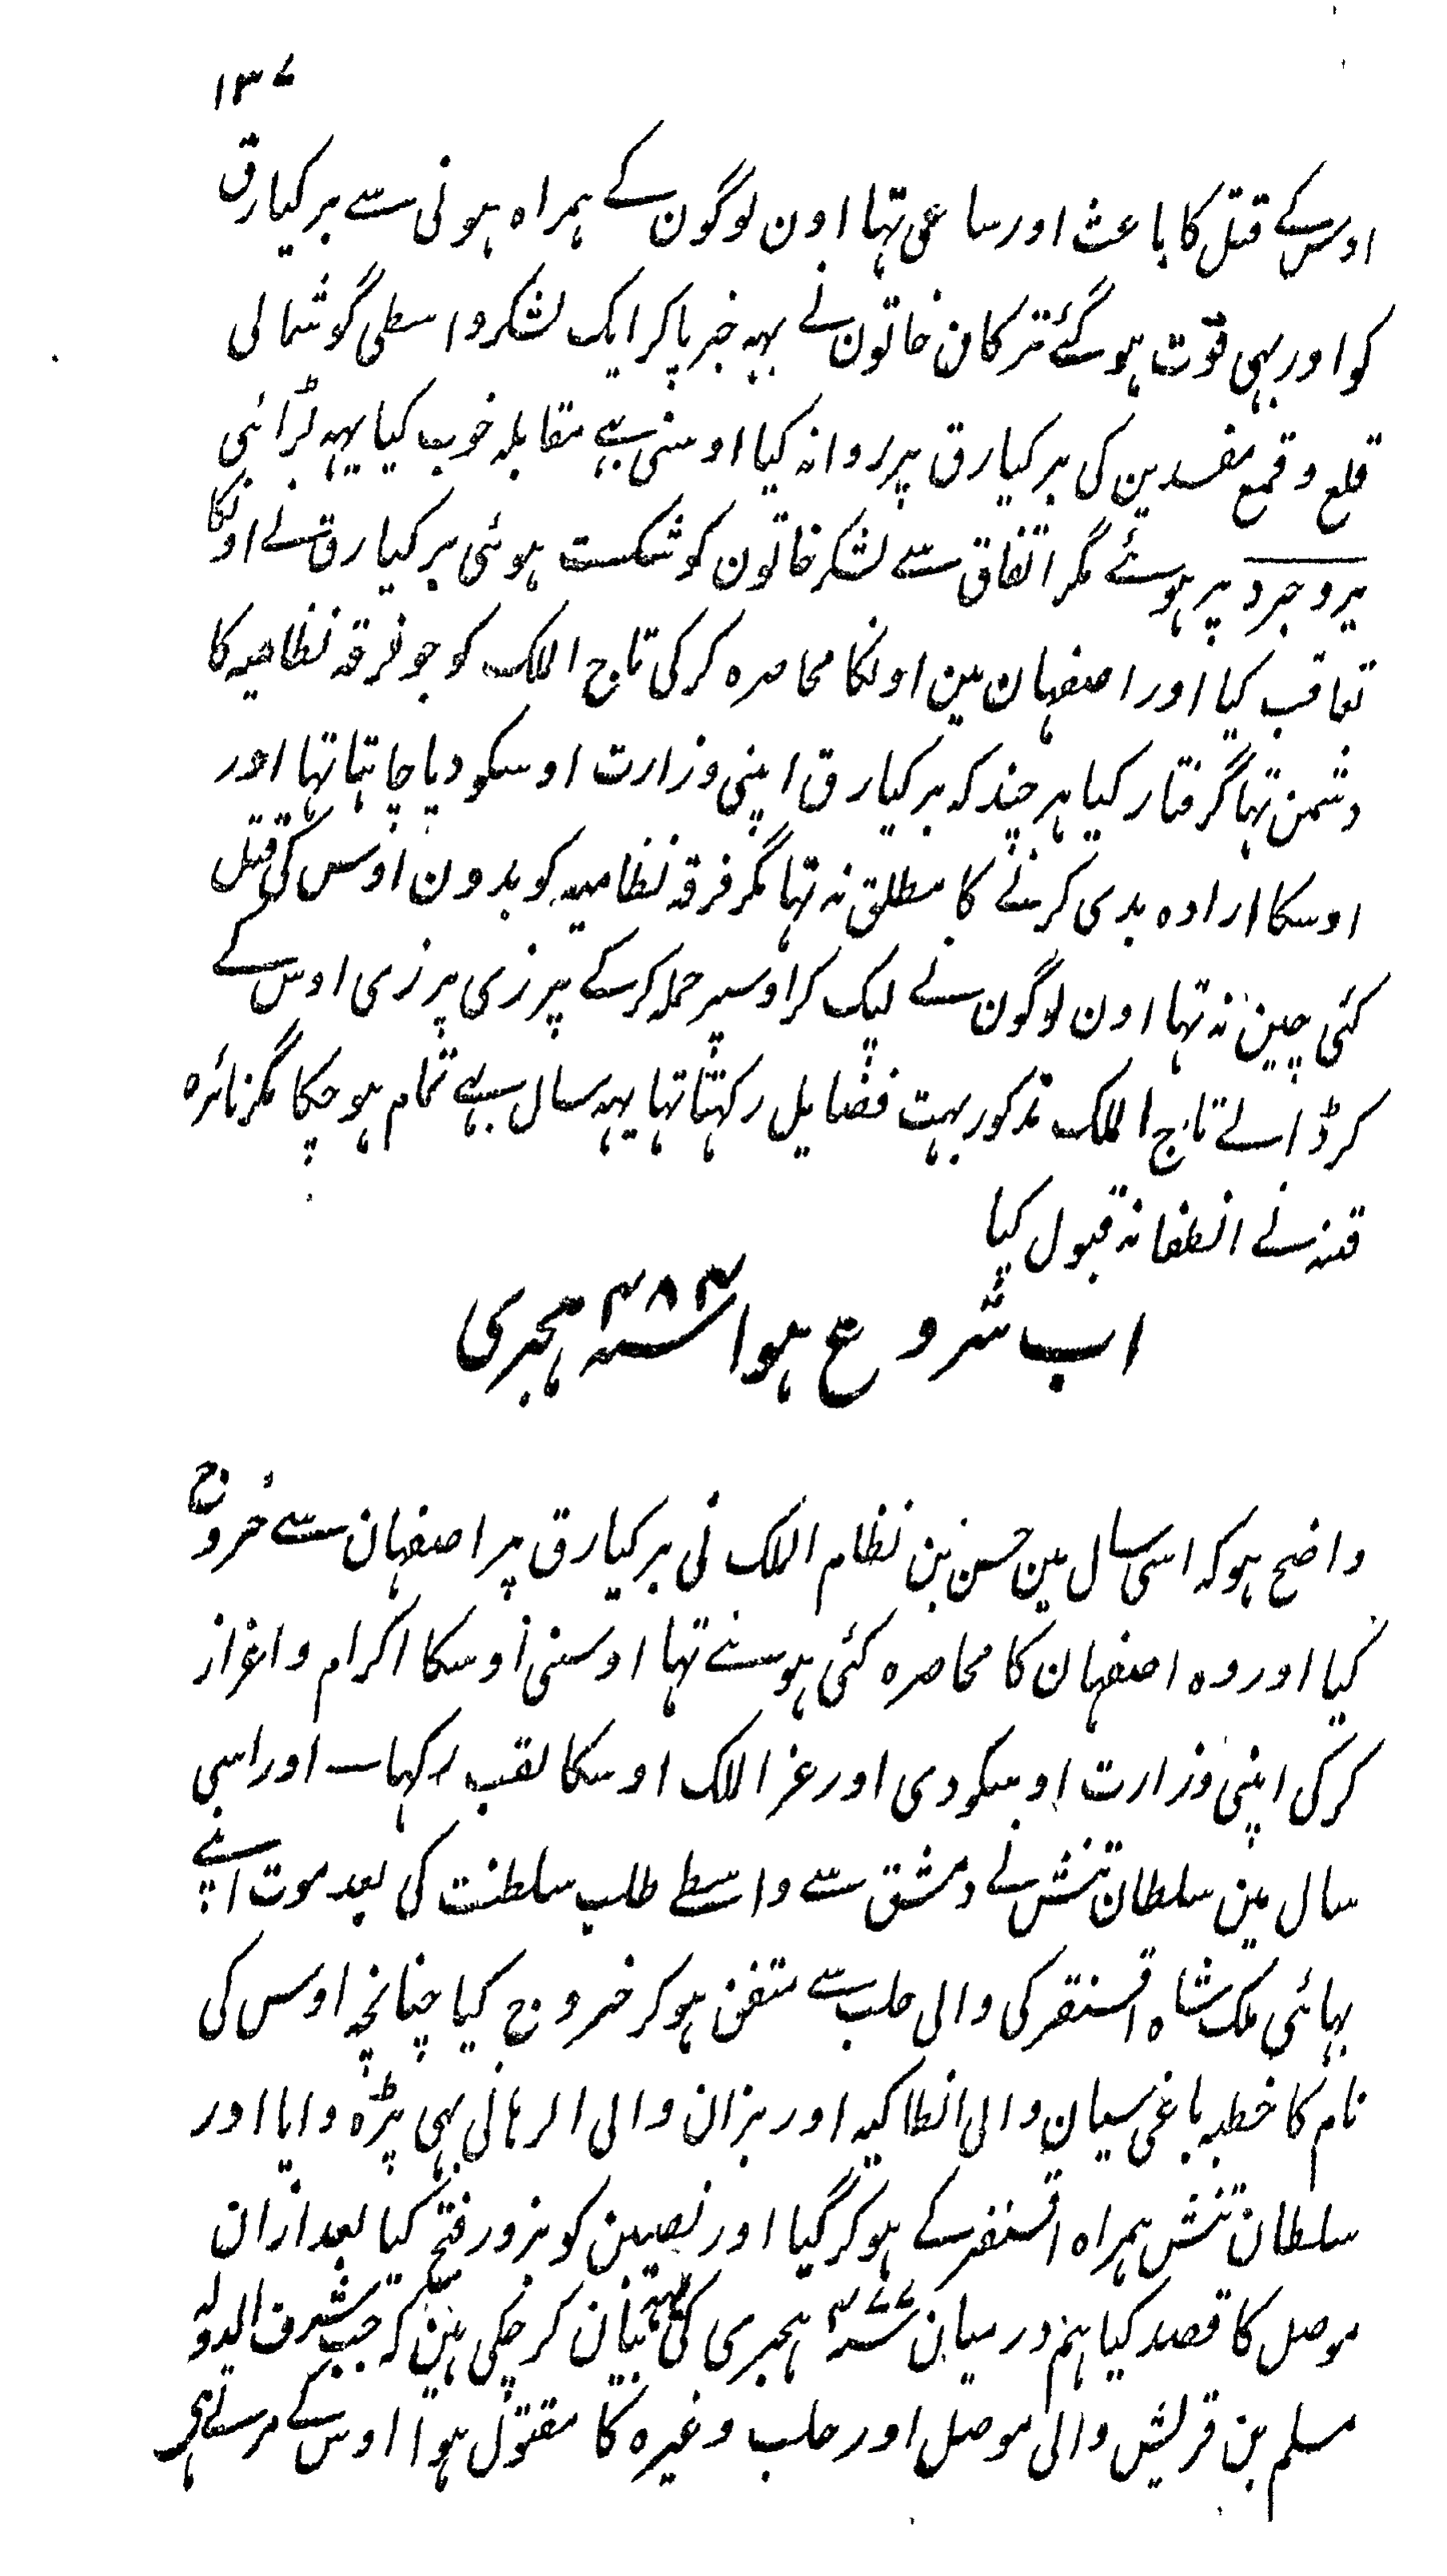 ۱۳۷
اوس کے قتل کا باعث اور ساعی تہا اون لوگون کے ہمراہ ہونی سے برکیارق
کو اور بہی قوّت ہو گئے ترکان خاتون نے یہہ خبر پاکر ایک لشکر واسطی گوشمالی
قلع و قمع مفسدین کی برکیارق پر روانہ کیا اوسنی بہی مقابلہ خوب کیا یہہ لڑائی
بروجرد پر ہوئے مگر اتفاق سے لشکر خاتون کو شکست ہوئی برکیارق نے اونکا
تعاقب کیا اور اصفہان مین اونکا محاصرہ کر کی تاج الملک کو جو فرقہ نظامیہ کا
دشمن تہا گرفتار کیا ہر چند کہ برکیارق اپنی وزارت اوسکو دیا چاہتا تہا اور
اوسکا ارادہ بدی کرنے کا مطلق نہ تہا مگر فرقہ نظامیہ کو بدون اوس کی قتل
کئی چین نہ تہا اون لوگون نے لپک کر اوسپر حملہ کر کے پرزی پرزی اوس کے
کر ڈالے تاج الملک مذکور بہت فضایل رکہتا تہا یہہ سال بہے تمام ہو چکا مگر نائرہ
فتنہ نے انطفا نہ قبول کیا
اب شروع ہوا سنہ ۴۸۴ ہجری
واضح ہو کہ اسی سال مین حسن بن نظام الملک نی برکیارق پر اصفہان سے خروج
کیا اور وہ اصفہان کا محاصرہ کئی ہوئے تہا اوسنی اوسکا اکرام و اعزاز
کر کی اپنی وزارت اوسکو دی اور عز الملک اوسکا لقب رکہا۔ اور اسی
سال مین سلطان تتش نے دمشق سے واسطے طلب سلطنت کی بعد موت اپنے
بہائی ملک شاہ اقسنقر کی والی حلب سے متفق ہو کر خروج کیا چنانچہ اوس کی
نام کا خطبہ باغی سیان والی انطاکیہ اور بزان والی الرہا نی بہی پڑہوایا اور
سلطان تتش ہمراہ اقسنقر کے ہو کر گیا اور نصیبین کو بزور فتح کیا بعد ازان
موصل کا قصد کیا ہم درمیان سنہ ۴۷۷ ہجری کی یہہ بیان کر چکی ہین کہ جب شرف الدولہ
مسلم بن قریش والی موصل اور حلب وغیرہ کا مقتول ہوا اوس کے مرتے ہی